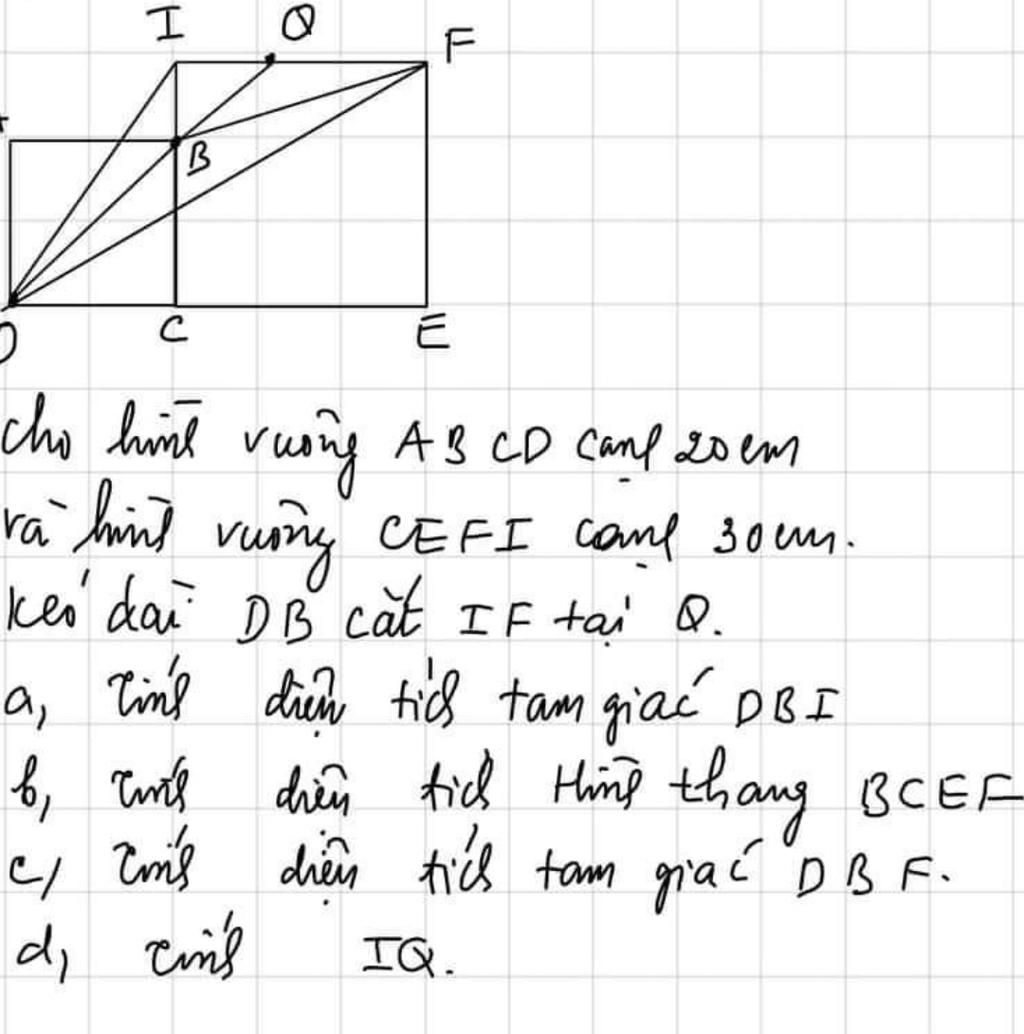 I Q F
B
D C E
cho hình vuông ABCD cạnh 20cm
và hình vuông CEFI cạnh 30cm.
kéo dài DB cắt IF tại Q.
a, Tính diện tích tam giác DBI
b, Tính diện tích Hình thang BCEF
c, Tính diện tích tam giác DBF.
d, Tính IQ.